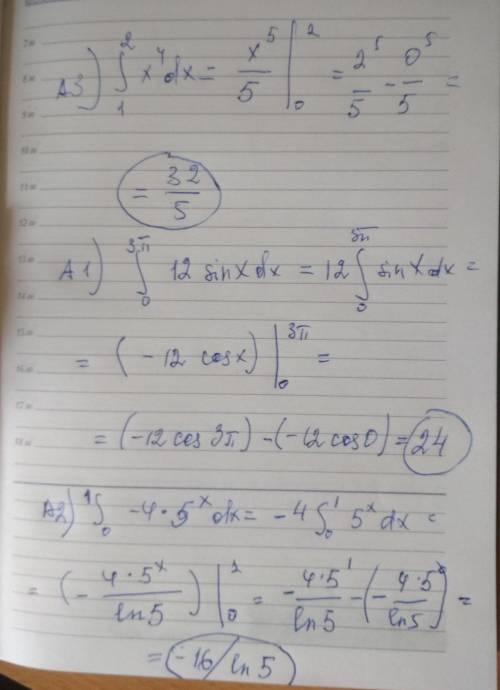 А3) ∫₁² x⁴dx = x⁵/5 |₀² = 2⁵/5 - 0⁵/5 =
= 32/5
А1) ∫₀³π 12 sinx dx = 12 ∫₀³π sinx dx =
= (-12 cosx) |₀³π =
= (-12 cos 3π) - (-12 cos0) = 24
А2) ∫₀¹ -4·5ˣ dx = -4 ∫₀¹ 5ˣ dx =
= (- 4·5ˣ/ln5) |₀¹ = - 4·5¹/ln5 - (- 4·5⁰/ln5) =
= -16/ln5